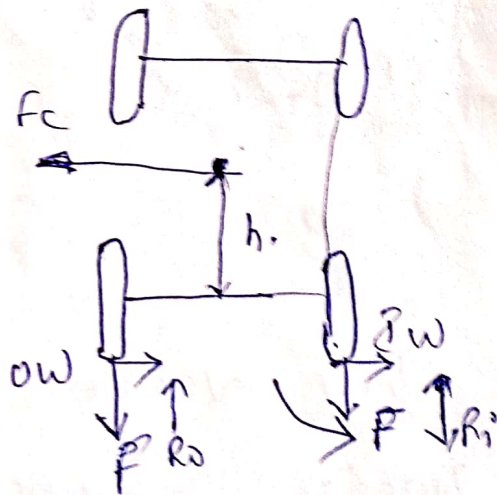 Fc
h.
OW
iW
F
Ro
F
Ri